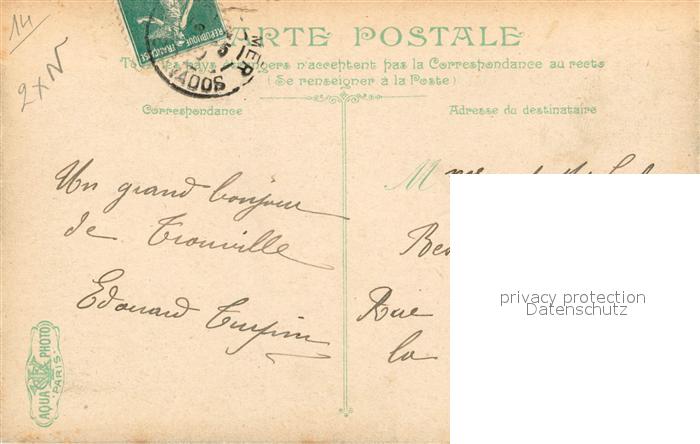 14
2 x N
REPUBLIQUE FRANÇAISE
MER
VADOS
CARTE POSTALE
Tous les pays étrangers n'acceptent pas la Correspondance au recto
(Se renseigner à la Poste)
Correspondance
Adresse du destinataire
Un grand bonjour
de Trouville
Edouard Turpin
M
Rue
la
privacy protection
Datenschutz
AQUA PHOTO
PARIS